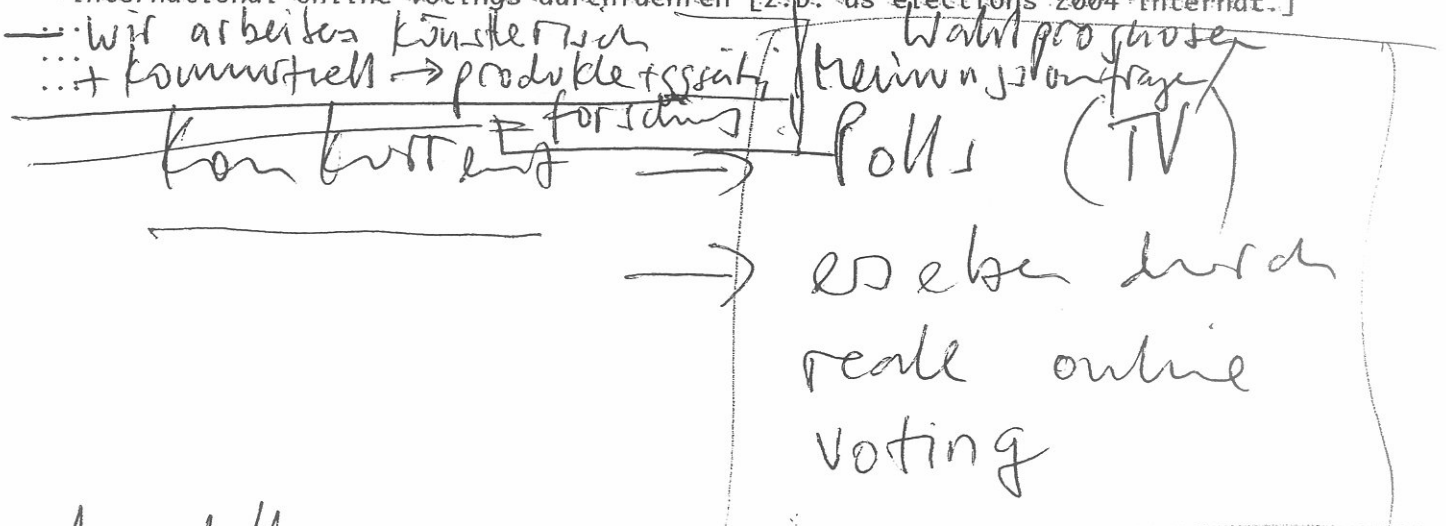 international online votings durchfuehren [z.b. us elections 2004 internat.]
wir arbeiten künstlerisch
+ kommerziell → produkte +
forschung
Wahlprognosen
Meinungsumfragen
Konkurrenz → Polls (TV)
→ ersetzen durch
reale online
voting